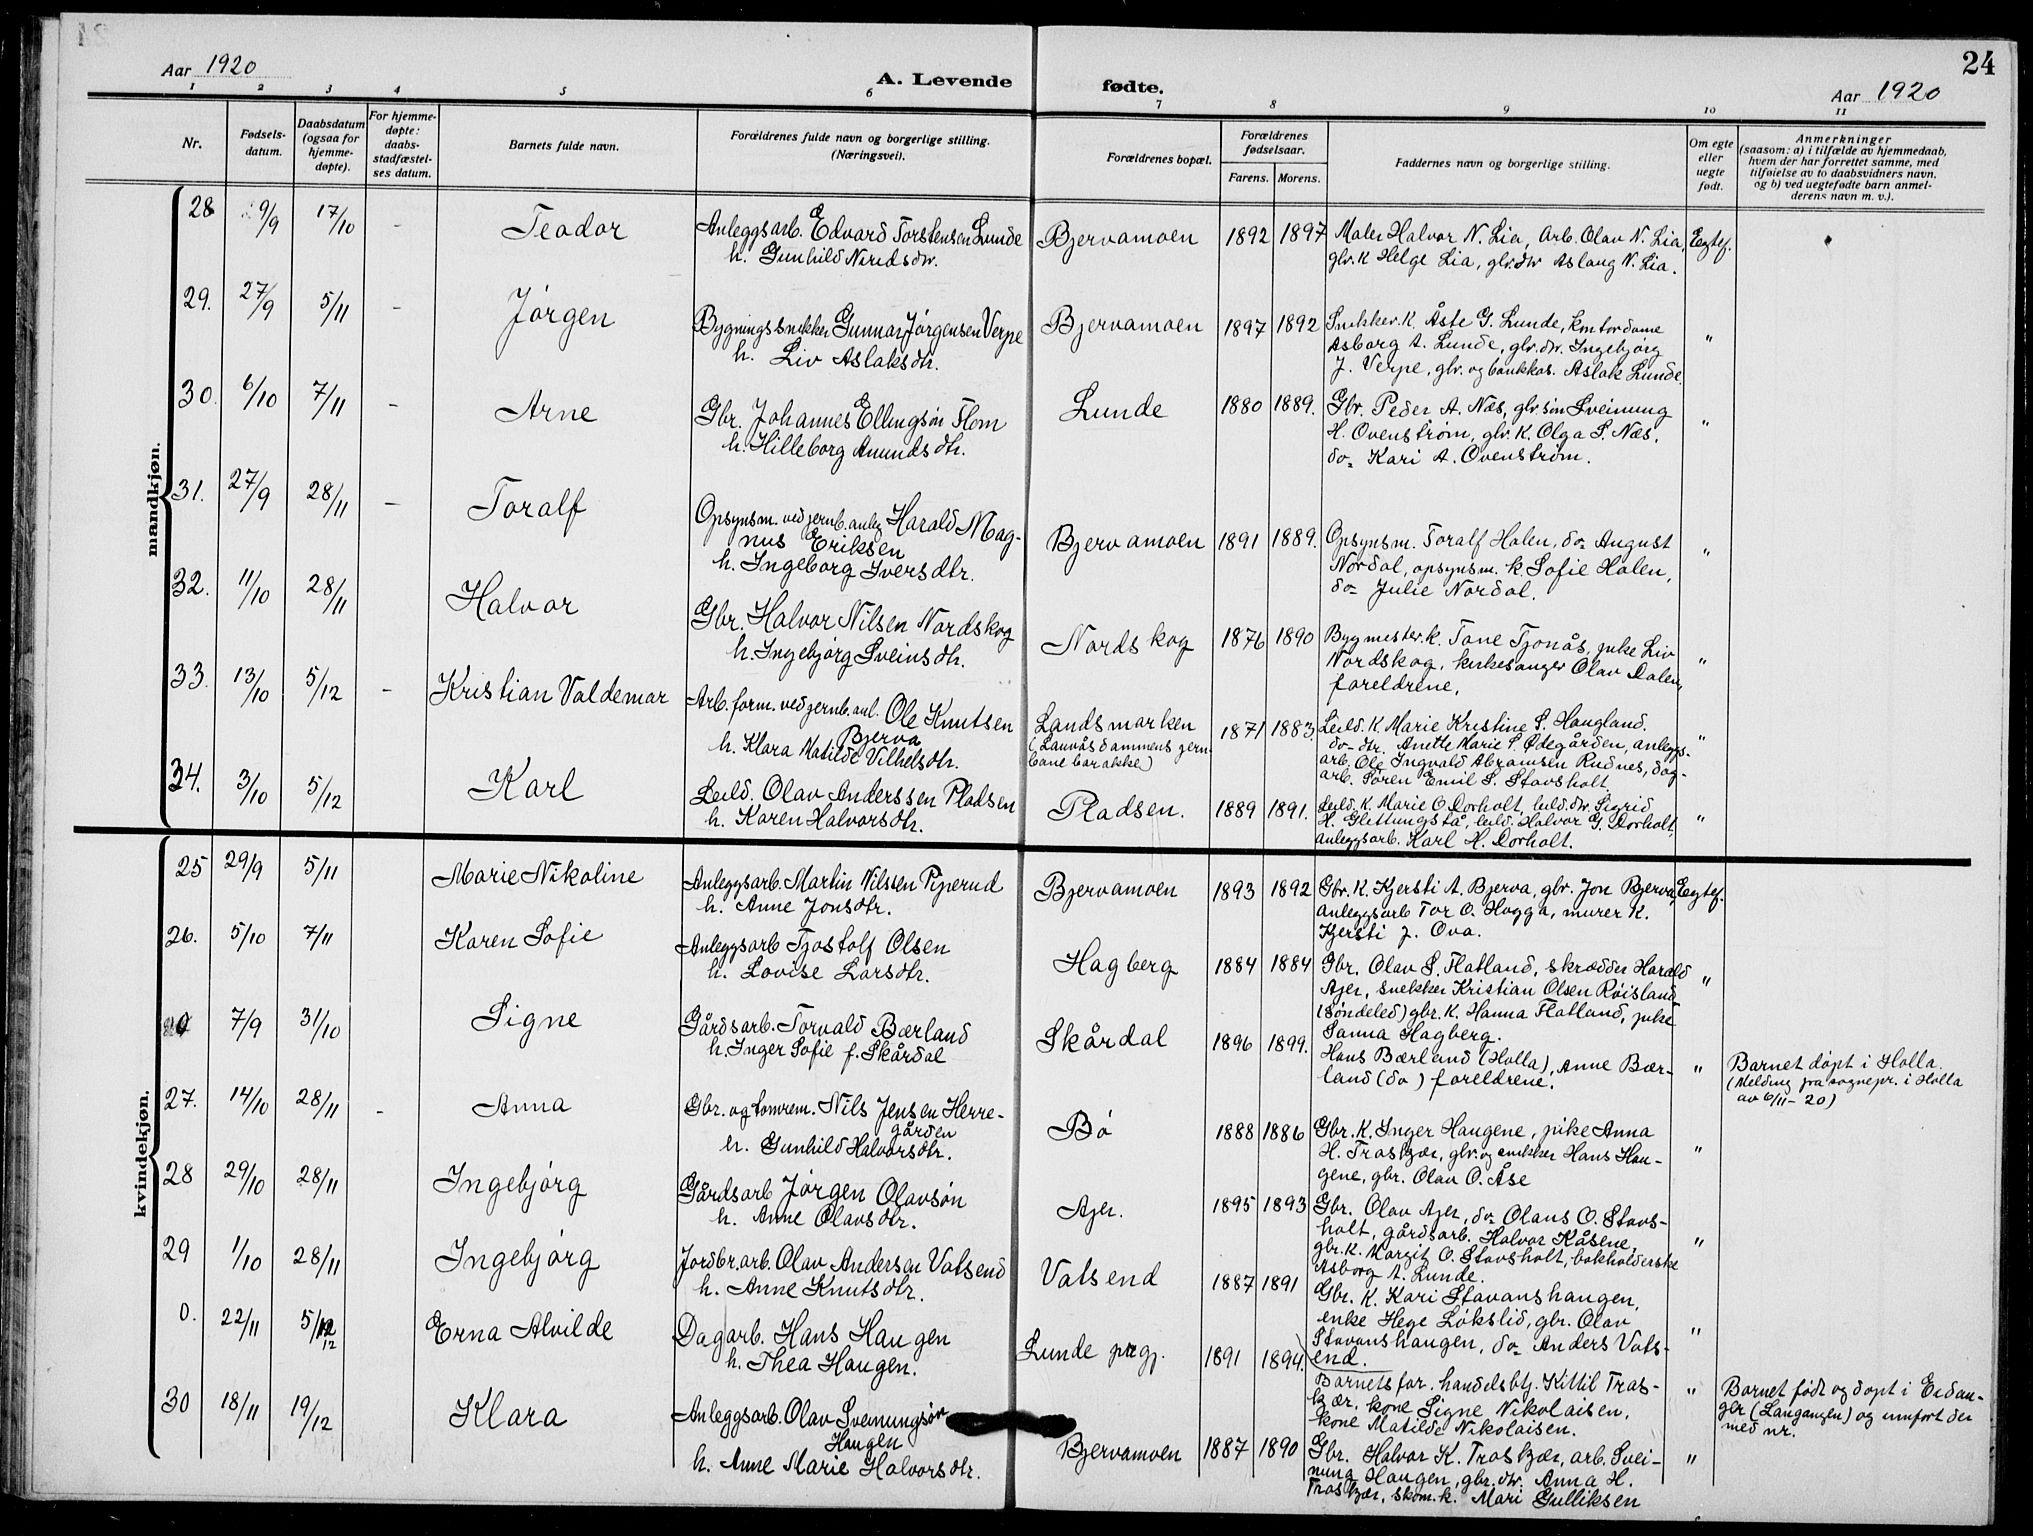 24
Aar 1920
A. Levende
fødte.
Aar 1920
1 2 3 4 5 6 7 8 9 10 11
Nr.
Fødsels-
datum.
Daabsdatum
(ogsaa for
hjemme-
døpte).
For hjemme-
døpte:
daabs-
stadfæstel-
ses datum.
Barnets fulde navn.
Forældrenes fulde navn og borgerlige stilling.
(Næringsvei).
Forældrenes bopæl.
Forældrenes
fødselsaar.
Farens. Morens.
Faddernes navn og borgerlige stilling.
Om egte
eller
uegte
født.
Anmerkninger
(saasom: a) i tilfælde av hjemmedaab,
hvem der har forrettet samme, med
tilføielse av to daabsvidners navn,
og b) ved uegtefødte barn anmel-
derens navn m. v.).
mandkjøn.
28 9/9 17/10 - Teodor
Anleggsarb. Edvard Torstensen Lunde
h. Gunhild Neridsdtr.
Bjervamoen 1892 1897
Maler Halvor N. Lia, Arb. Olav N. Lia,
gbr.k Helge Lia, gbr.dtr Aslaug N. Lia.
Egtef.
29. 27/9 5/11 - Jørgen
Bygningssnekker Gunnar Jørgensen Verpe
h. Liv Aslaksdtr.
Bjervamoen 1897 1892
Snekker.k. Åste G. Lunde, kontordame
Asborg A. Lunde, gbr.dtr. Ingebjørg
J. Verpe, gbr. og bankkas. Aslak Lunde.
"
30. 6/10 7/11 - Arne
Gbr. Johannes Ellingsøn Flom
h. Hilleborg Amundsdtr.
Lunde 1880 1889.
Gbr. Peder A. Næs, gbr.søn Sveinung
H. Ovenstrøm, gbr. k. Olga S. Næs,
do- Kari A. Ovenstrøm.
"
31. 27/9 28/11 - Toralf
Opsynsm. ved jernb.anleg Harald Mag-
nus Eriksen
h. Ingeborg Iversdtr.
Bjervamoen 1891 1889.
Opsynsm. Toralf Halen, do- August
Nordal, opsynsm. k. Sofie Halen,
do- Julie Nordal.
"
32. 11/10 28/11 Halvor
Gbr. Halvor Nilsen Nordskog
h. Ingebjørg Sveinsdtr.
Nordskog 1876 1890
Bygmester.k. Tone Tjønås, pike Liv
Nordskog, kirkesanger Olav Dalen,
foreldrene.
"
33. 13/10 5/12 - Kristian Valdemar
Arb.form. ved jernb.anl. Ole Knutsen
Bjerva
h. Klara Matilde Vilhelsdtr.
Landsmarken
(Lauvåsdammens jern-
bane barakke)
1871 1883.
Leild. K. Marie Kristine S. Haugland.
do- dtr. Anette Marie S. Ødegården, anleggs-
arb. Ole Ingvald Abramsen Rudnes, dag-
arb. Søren Emil S. Stavsholt.
"
34. 3/10 5/12 Karl
Leild. Olav Anderssen Pladsen
h. Karen Halvorsdtr.
Pladsen. 1889 1891.
Leild. K. Marie O Dorholt, leild.dtr. Sigrid
H. Glettungstå, leild. Halvor G. Dorholt
anleggsarb. Karl H. Dorholt.
"
kvindekjøn.
25 29/9 5/11 Marie Nikoline
Anleggsarb. Martin Nilssen Piperud
h. Anne Jonsdtr.
Bjervamoen 1893 1892
Gbr. K. Kjersti A. Bjerva, gbr. Jon Bjerva,
anleggsarb Tor O. Hogga, murer K.
Kjersti J. Ova.
Egtef.
26. 5/10 7/11 Karen Sofie
Anleggsarb Tjostolf Olsen
h. Lovise Larsdtr.
Hagberg 1884 1884
Gbr. Olav S. Flatland, skrædder Harald
Ajer, snekker Kristian Olsen Røisland,
(Søndeled) gbr. K. Hanna Flatland, pike
Sanna Hagberg.
"
0 7/9 31/10 Signe
Gårdsarb. Torvald Bærland
h. Inger Sofie f. Skårdal
Skårdal 1896 1899.
Hans Bærland (Holla), Anne Bær-
land (do) foreldrene.
"
Barnet døpt i Holla.
(Melding fra sognepr. i Holla
av 6/11-20)
27. 14/10 28/11 - Anna
Gbr. og tømrem. Nils Jensen Herre-
gården
h. Gunhild Halvorsdtr.
Bø 1888 1886
Gbr. K. Inger Haugene, pike Anna
H. Traskjær, gbr. og snekker Hans Hau-
gene, gbr. Olav O. Åse
"
28 29/10 28/11 Ingebjørg
Gårdsarb Jørgen Olavsøn
h. Anne Olavsdtr.
Ajer. 1895 1893
Gbr. Olav Ajer, do- Olaus O. Stavs-
holt, gårdsarb. Halvor Kåsene,
gbr. K. Margit O. Stavsholt, bokholderske
Asborg A. Lunde.
"
29 1/10 28/11 Ingebjørg
Jordbr.arb. Olav Andersen Vatsend
h. Anne Knutsdtr.
Vatsend 1887 1891
Gbr. K. Kari Stavanshaugen,
enke Hege Løkslid, gbr. Olav
Stavanshaugen, do- Anders Vats-
end.
"
0. 22/11 5/12 Erna Alvilde
Dagarb. Hans Haugen
h. Thea Haugen.
Lunde pregj. 1891 1894.
Barnets far, handelsbtj. Kittil Tras-
kjær, kone Signe Nikolaisen,
kone Matilde Nikolaisen.
"
Barnet født og døpt i Eidan-
ger (Langangen) og innført der
med nr.
30 18/11 19/12 Klara
Anleggsarb. Olav Sveinungsøn
Haugen
h. Anne Marie Halvorsdtr.
Bjervamoen 1887 1890
Gbr. Halvor K. Traskjær, arb. Svei-
nung Haugen, gbr.dtr. Anna H.
Traskjær, skom.k. Mari Gulliksen
"